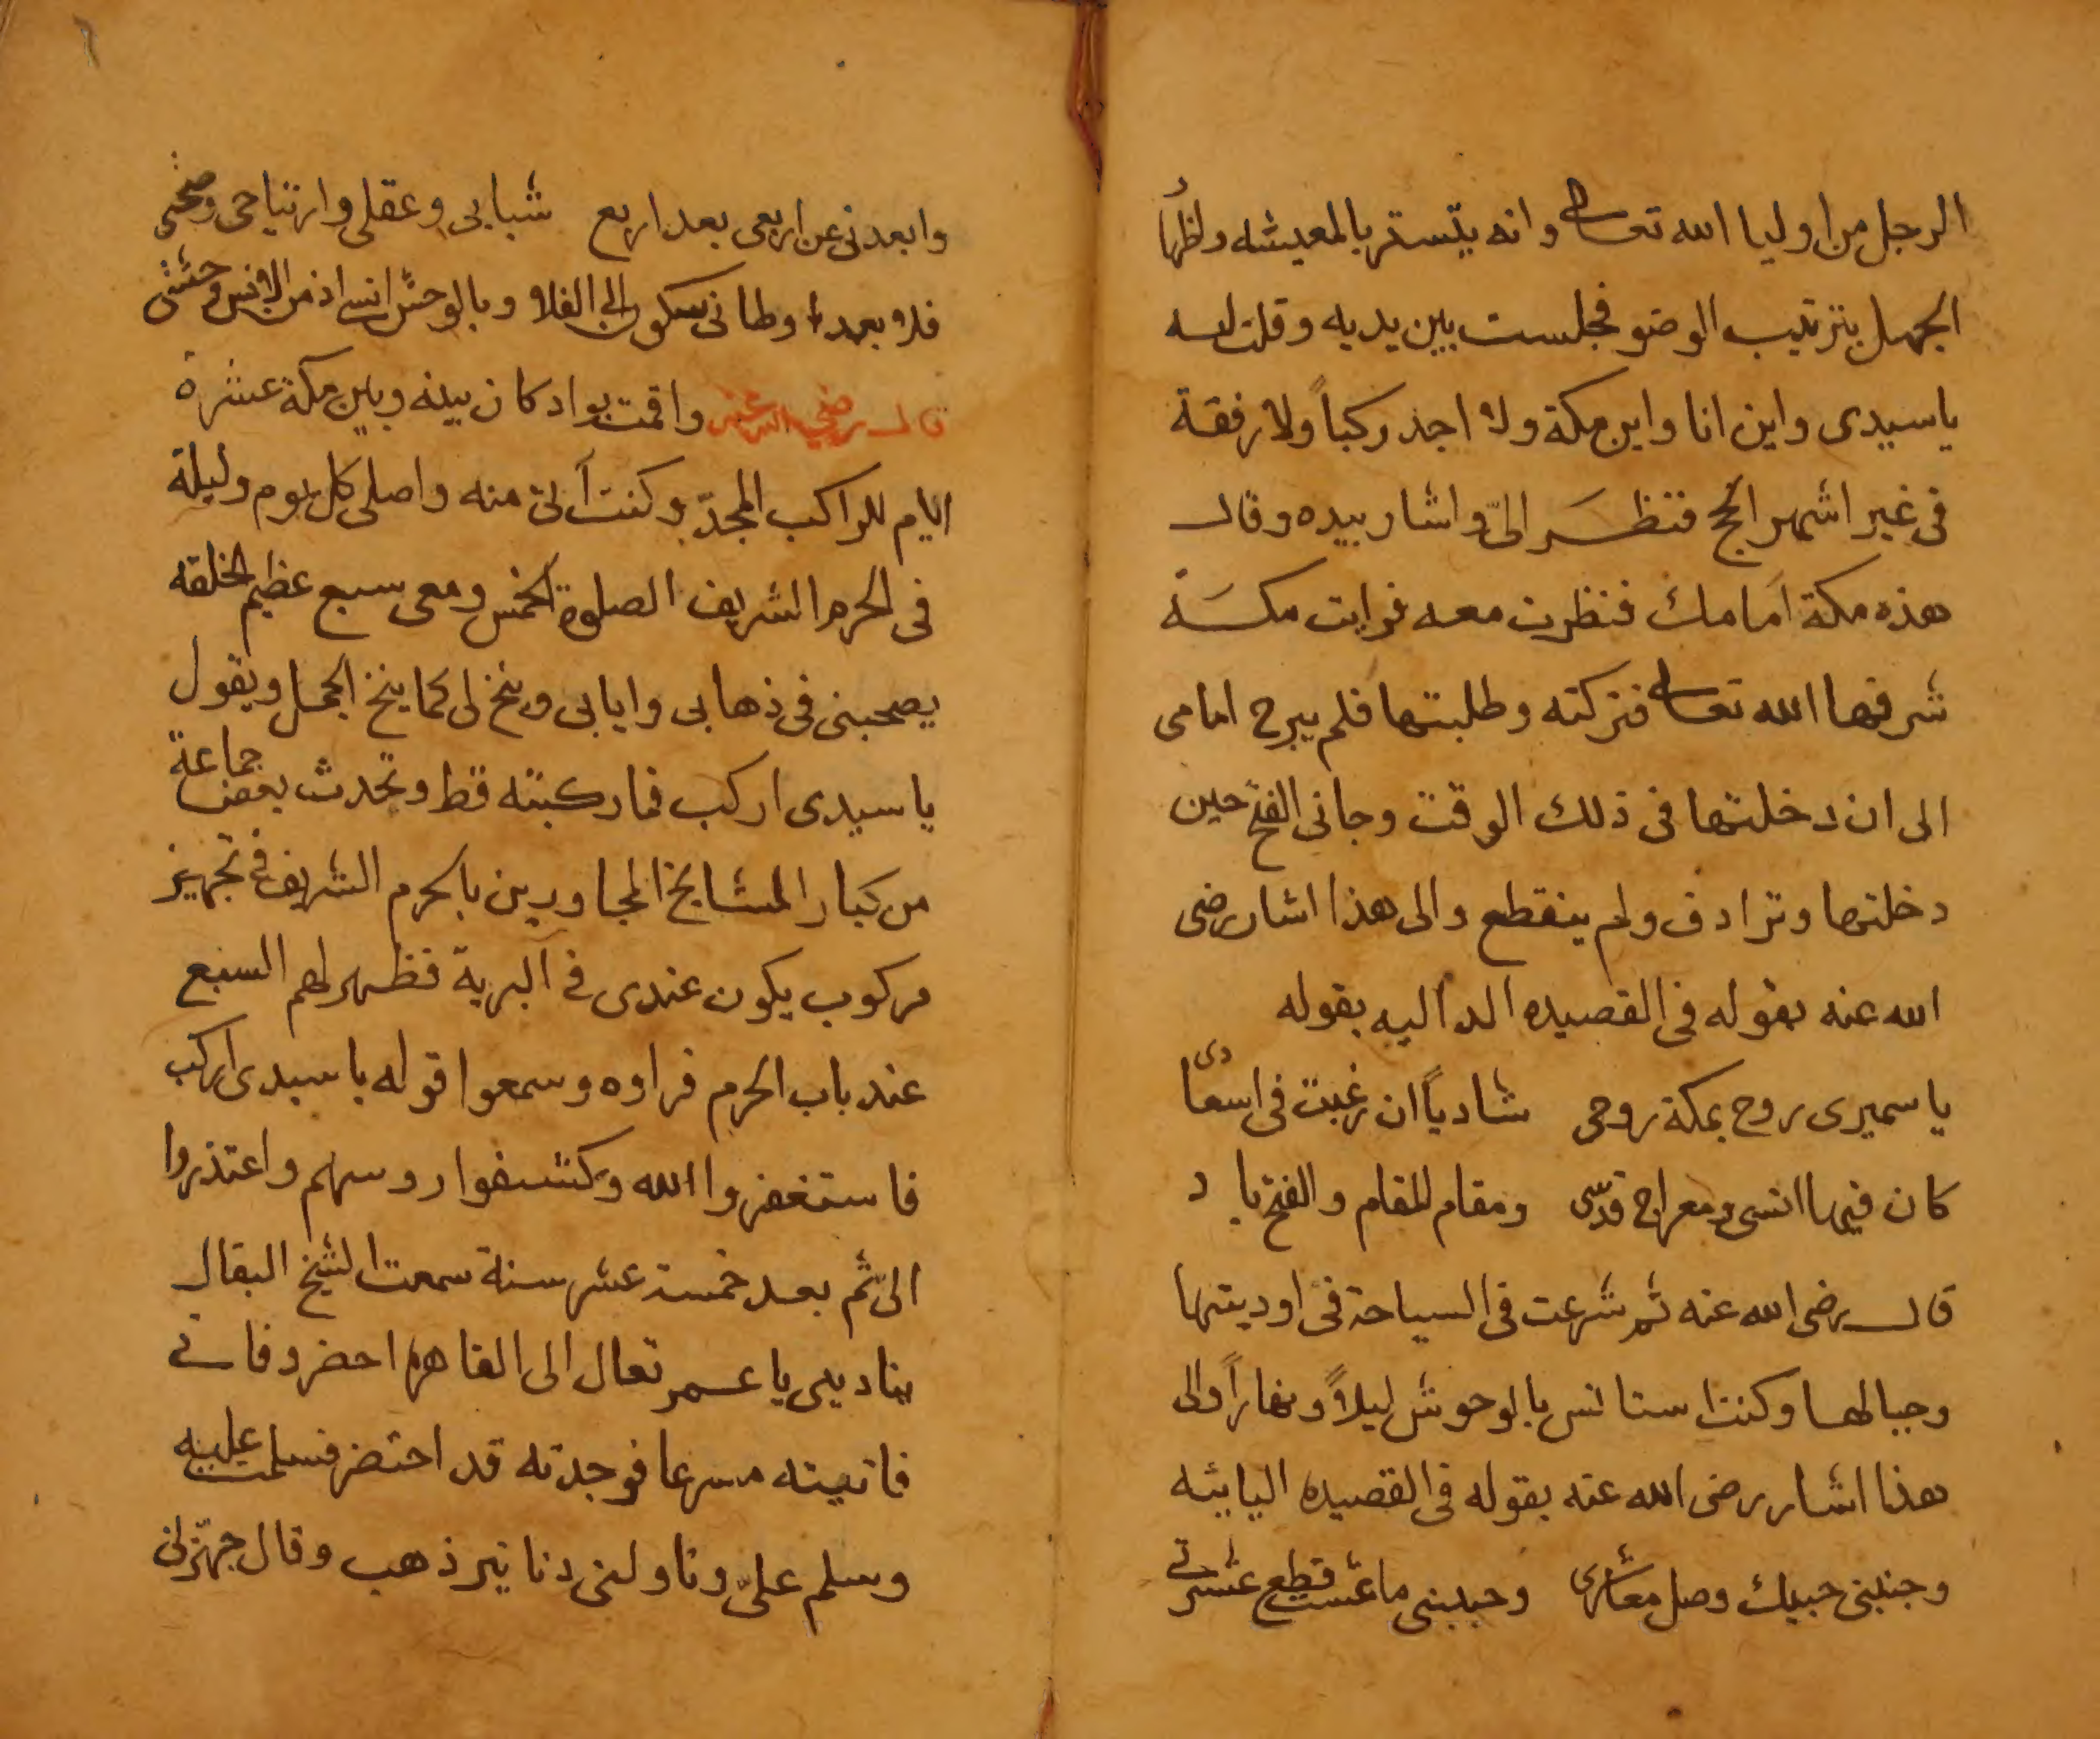 الرجل من اوليا الله تعالى وانه يتستر بالمعيشه واظهار
الجهل بترتيب الوضو فجلست بين يديه وقلت له
ياسيدى واين انا واين مكة ولا اجد ركباً ولا رفقة
فى غير اشهر الحج فنظَر الىّ واشار بيده وقال
هذه مكة اَمامك فنظرت معه فرايت مكَة
شرفها الله تعالى فتركته وطلبتها فلم يبرح امامى
الى ان دخلتها فى ذلك الوقت وجانى الفتح حين
دخلتها وترادف ولم ينقطع والى هذا اشار رضى
الله عنه بقوله فى القصيده الداليه بقوله
ياسميرى روح بمكة روحى شادياً ان رغبت فى اسعادى
كان فيها انسى ومعراج قدسّى ومقام المقام والفتح باد
قال رضى الله عنه ثم شرعت فى السياحة فى اوديتها
وجبالها وكنت استانس بالوحوش ليلاً ونهاراً والى
هذا اشار رضى الله عنه بقوله فى القصيده اليائيه
وجنبنى حبيك وصل معاشرى وحببنى ماعشت قطع عشيرتى
وابعدنى عن اربعى بعد اربع شبابى وعقلى وارتياحى وصحتى
فلا بعد اوطانى سكون الى الفلا وبالوحش انسى اذ من الانس وحشتى
قال رضي الله عنه واقمت بواد كان بينه وبين مكة عشرة
ايام للراكب المجدّ وكنت آتى منه واصلى كل يوم وليلة
فى الحرم الشريف الصلوة الخمس ومعى سبع عظيم الخلقه
يصحبنى فى ذهابى وايابى وينخ لى كما ينخ الجمل ويقول
ياسيدى اركب فما ركبته قط وتحدث بعض جماعة
من كبار المشايخ المجاورين بالحرم الشريف فى تجهيز
مركوب يكون عندى فى البرية فظهر لهم السبع
عند باب الحرم فراوه وسمعوا قوله ياسيدى اركب
فاستغفروا الله وكشفوا روسهم واعتذروا
الىّ ثم بعد خمسة عشر سنة سمعت الشيخ البقال
يناديى يا عمر تعال الى القاهره احضر وفاتى
فاتيته مسرعا فوجدته قد احتضر فسلمت عليه
وسلم علىّ وناولنى دنانير ذهب وقال جهّزنى